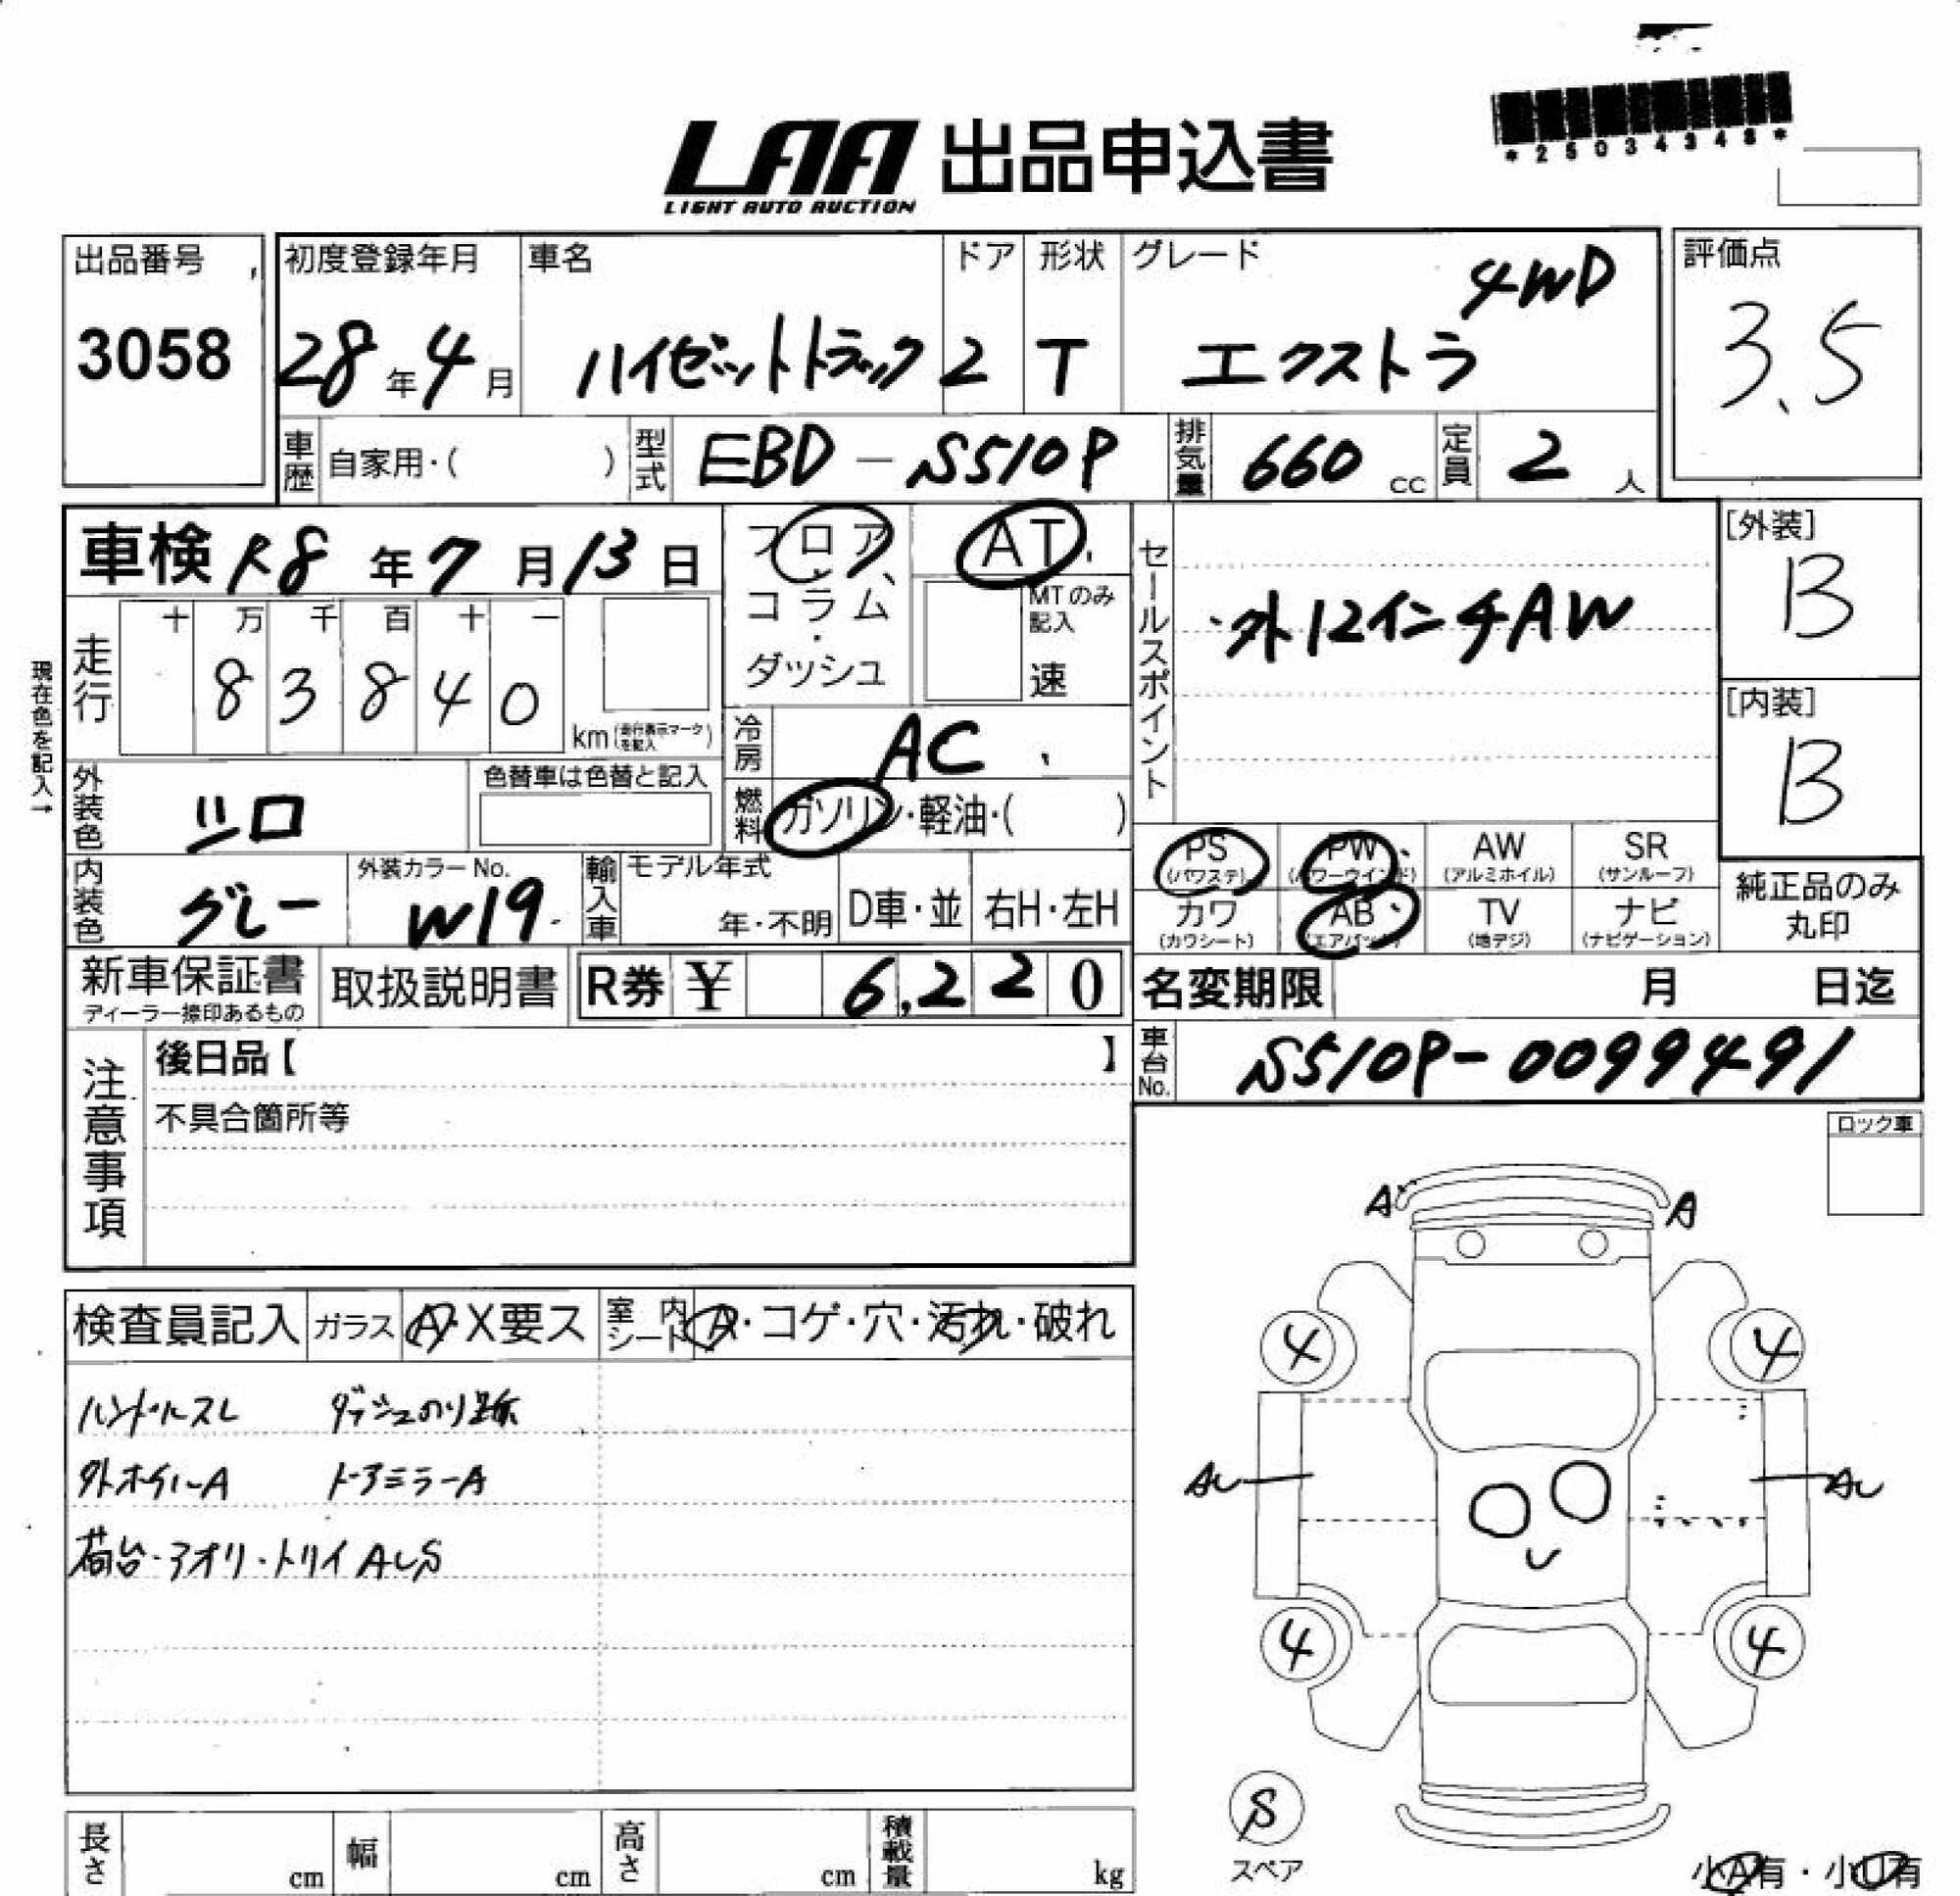 *25034348*
LAA 出品申込書
LIGHT AUTO AUCTION
出品番号
3058
初度登録年月
28年4月
車名
ハイゼットトラック
ドア
2
形状
T
グレード
4WD
エクストラ
評価点
3.5
車歴 自家用・( )
型式 EBD-S510P
排気量 660 cc
定員 2 人
車検 R8年7月13日
フロア・
コラム・
ダッシュ
AT
MTのみ記入
速
セールスポイント
・外12インチAW
[外装]
B
[内装]
B
現在色を記入→
走行
十 万 千 百 十 一
8 3 8 4 0
km(走行表示マークを記入)
冷房 AC
燃料 ガソリン・軽油・( )
外装色 シロ
色替車は色替と記入
内装色 グレー
外装カラーNo.
W19
輸入車
モデル年式
年・不明
D車・並
右H・左H
PS (パワステ)
PW (パワーウインド)
AW (アルミホイル)
SR (サンルーフ)
カワ (カワシート)
AB (エアバック)
TV (地デジ)
ナビ (ナビゲーション)
純正品のみ
丸印
新車保証書
ディーラー捺印あるもの
取扱説明書
R券 ¥ 6,220
名変期限 月 日迄
車台No. S510P-0099491
注意事項
後日品【 】
不具合箇所等
ロック車
検査員記入
ガラス A・X要ス
室内シート A・コゲ・穴・汚れ・破れ
ハンドルスレ ダッシュのり跡
外ホイルA ドアミラーA
荷台・アオリ・トリイAUS
A A
4 4
AU AU
4 4
S
スペア
長さ cm
幅 cm
高さ cm
積載量 kg
小A有・小U有